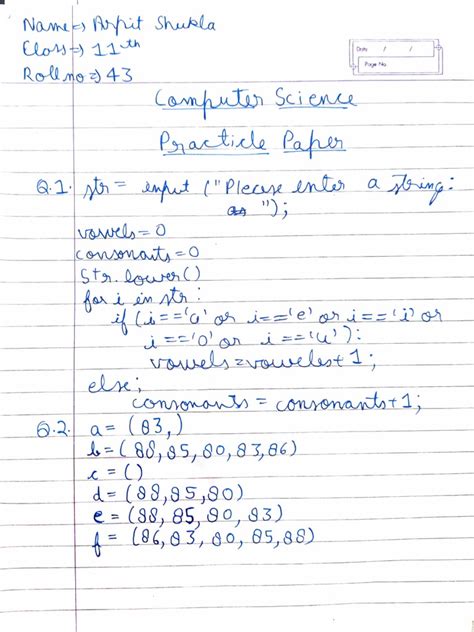 Name => Arpit Shukla
Class => 11th
Roll no => 43
Date / /
Page No.
Computer Science
Practicle Paper
Q.1. str = input ("Please enter a string:
");
vowels = 0
consonants = 0
Str.lower()
for i in str :
if (i=='a' or i=='e' or i=='i' or
i=='o' or i=='u'):
vowels=voweles+1;
else;
consonants = consonants+1;
Q.2. a = (83,)
b = (88,85,80,83,86)
c = ()
d = (88,85,80)
e = (88,85,80,83)
f = (86,83,80,85,88)